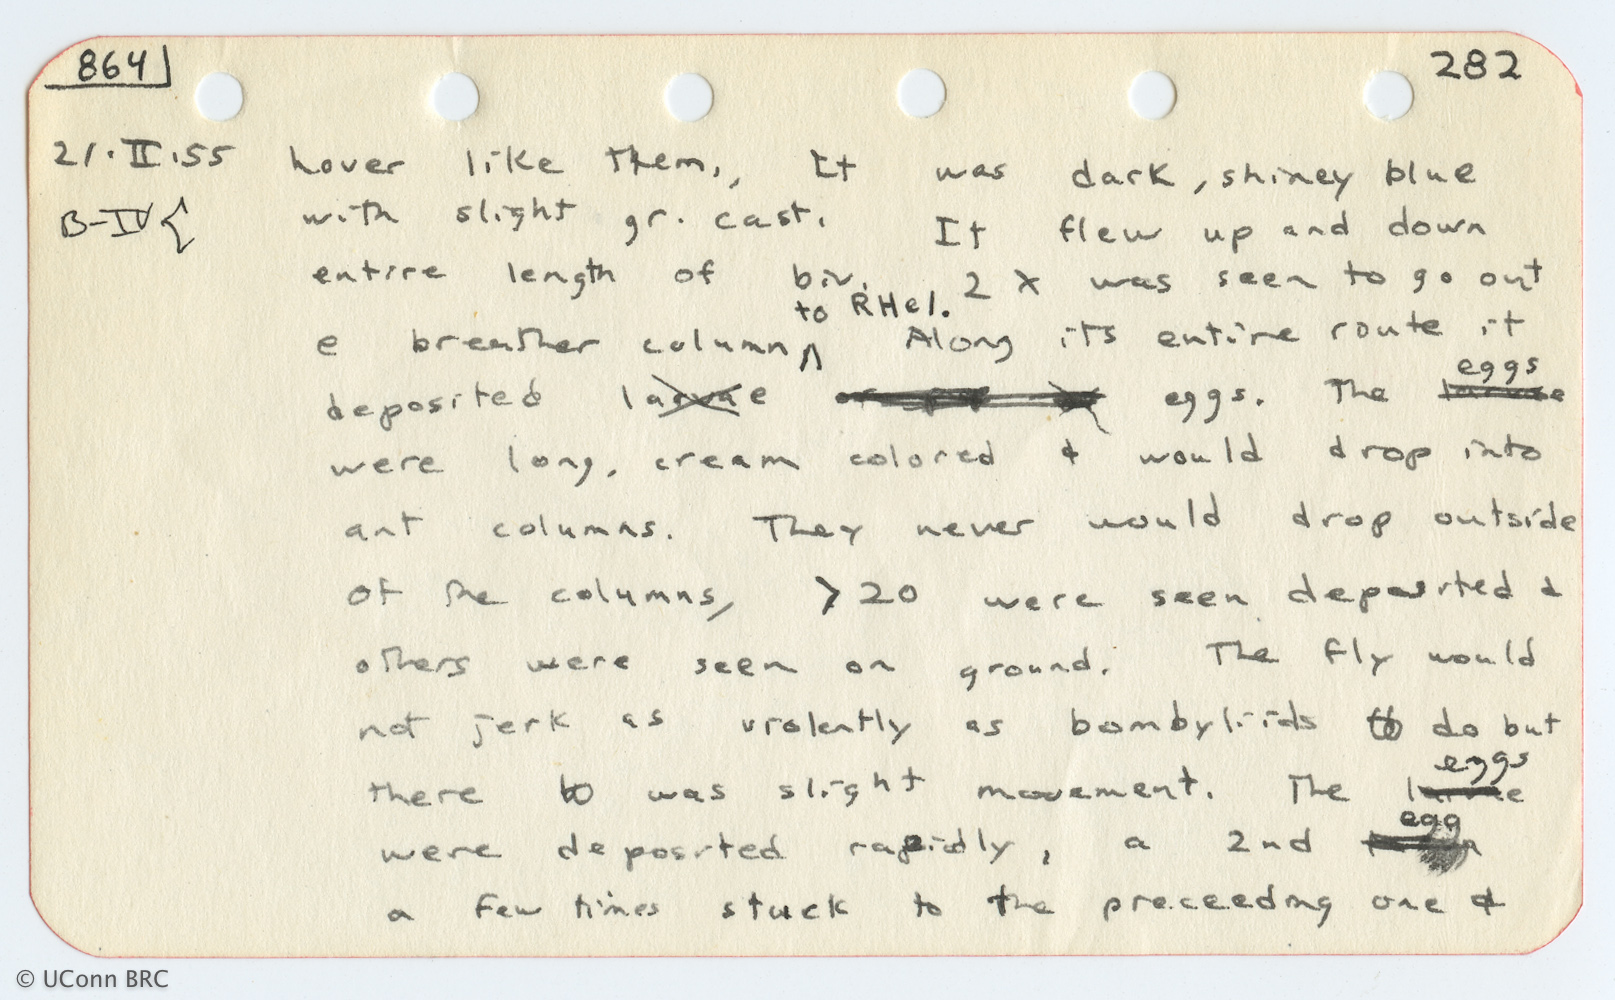 864 282
21.II.55 hover like them., It was dark, shiney blue
B-IV{ with slight gr. cast. It flew up and down
entire length of biv. 2 X was seen to go out
to RHel.
e breather column ^ Along its entire route it
eggs
deposited larvae eggs. The larvae
were long, cream colored & would drop into
ant columns. They never would drop outside
of the columns, >20 were seen deposited &
others were seen on ground. The fly would
not jerk as violently as bombyliids to do but
eggs
there to was slight movement. The larvae
egg
were deposited rapidly, a 2nd
a few times stuck to the preceeding one &
© UConn BRC